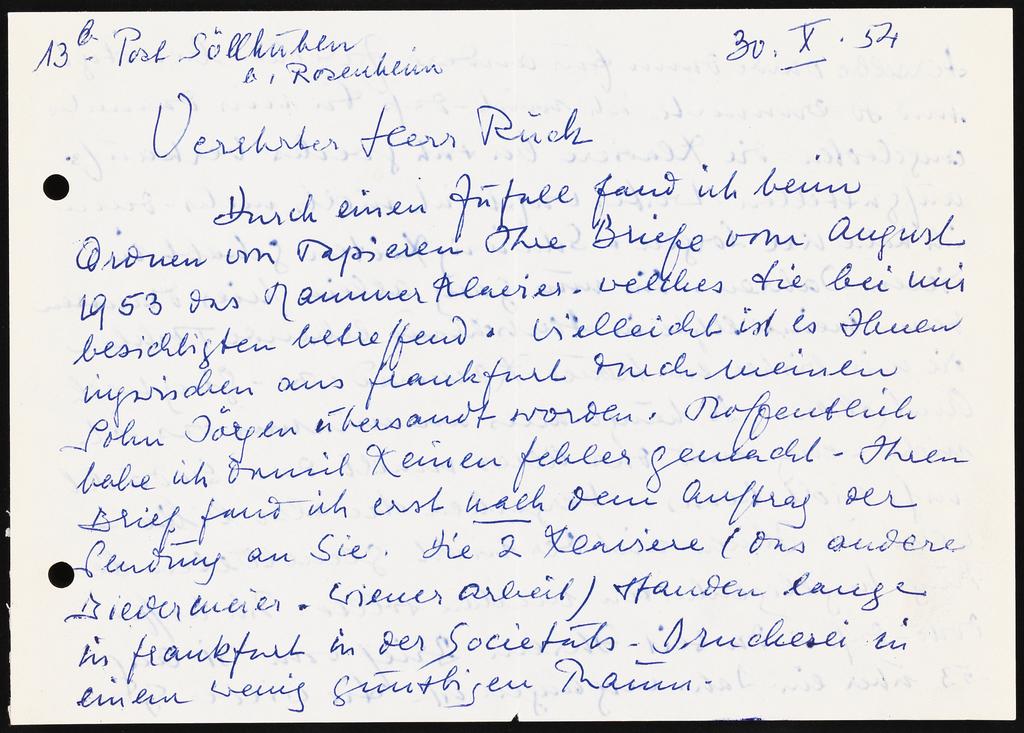 13b Post Söllhuben 30. X. 54
b. Rosenheim
Verehrter Herr Rück
Durch einen Zufall fand ich beim
Ordnen von Papieren Ihre Briefe vom August
1953 das Hammerklavier - welches Sie bei mir
besichtigten betreffend. Vielleicht ist es Ihnen
inzwischen aus Frankfurt durch meinen
Sohn Jörgen übersandt worden. Hoffentlich
habe ich damit keinen Fehler gemacht - Ihren
Brief fand ich erst nach dem Auftrag der
Sendung an Sie. Die 2 Klaviere (das andere
Biedermeier - Wiener Arbeit) standen lange
in Frankfurt in der Societäts-Druckerei in
einem wenig günstigen Raum.